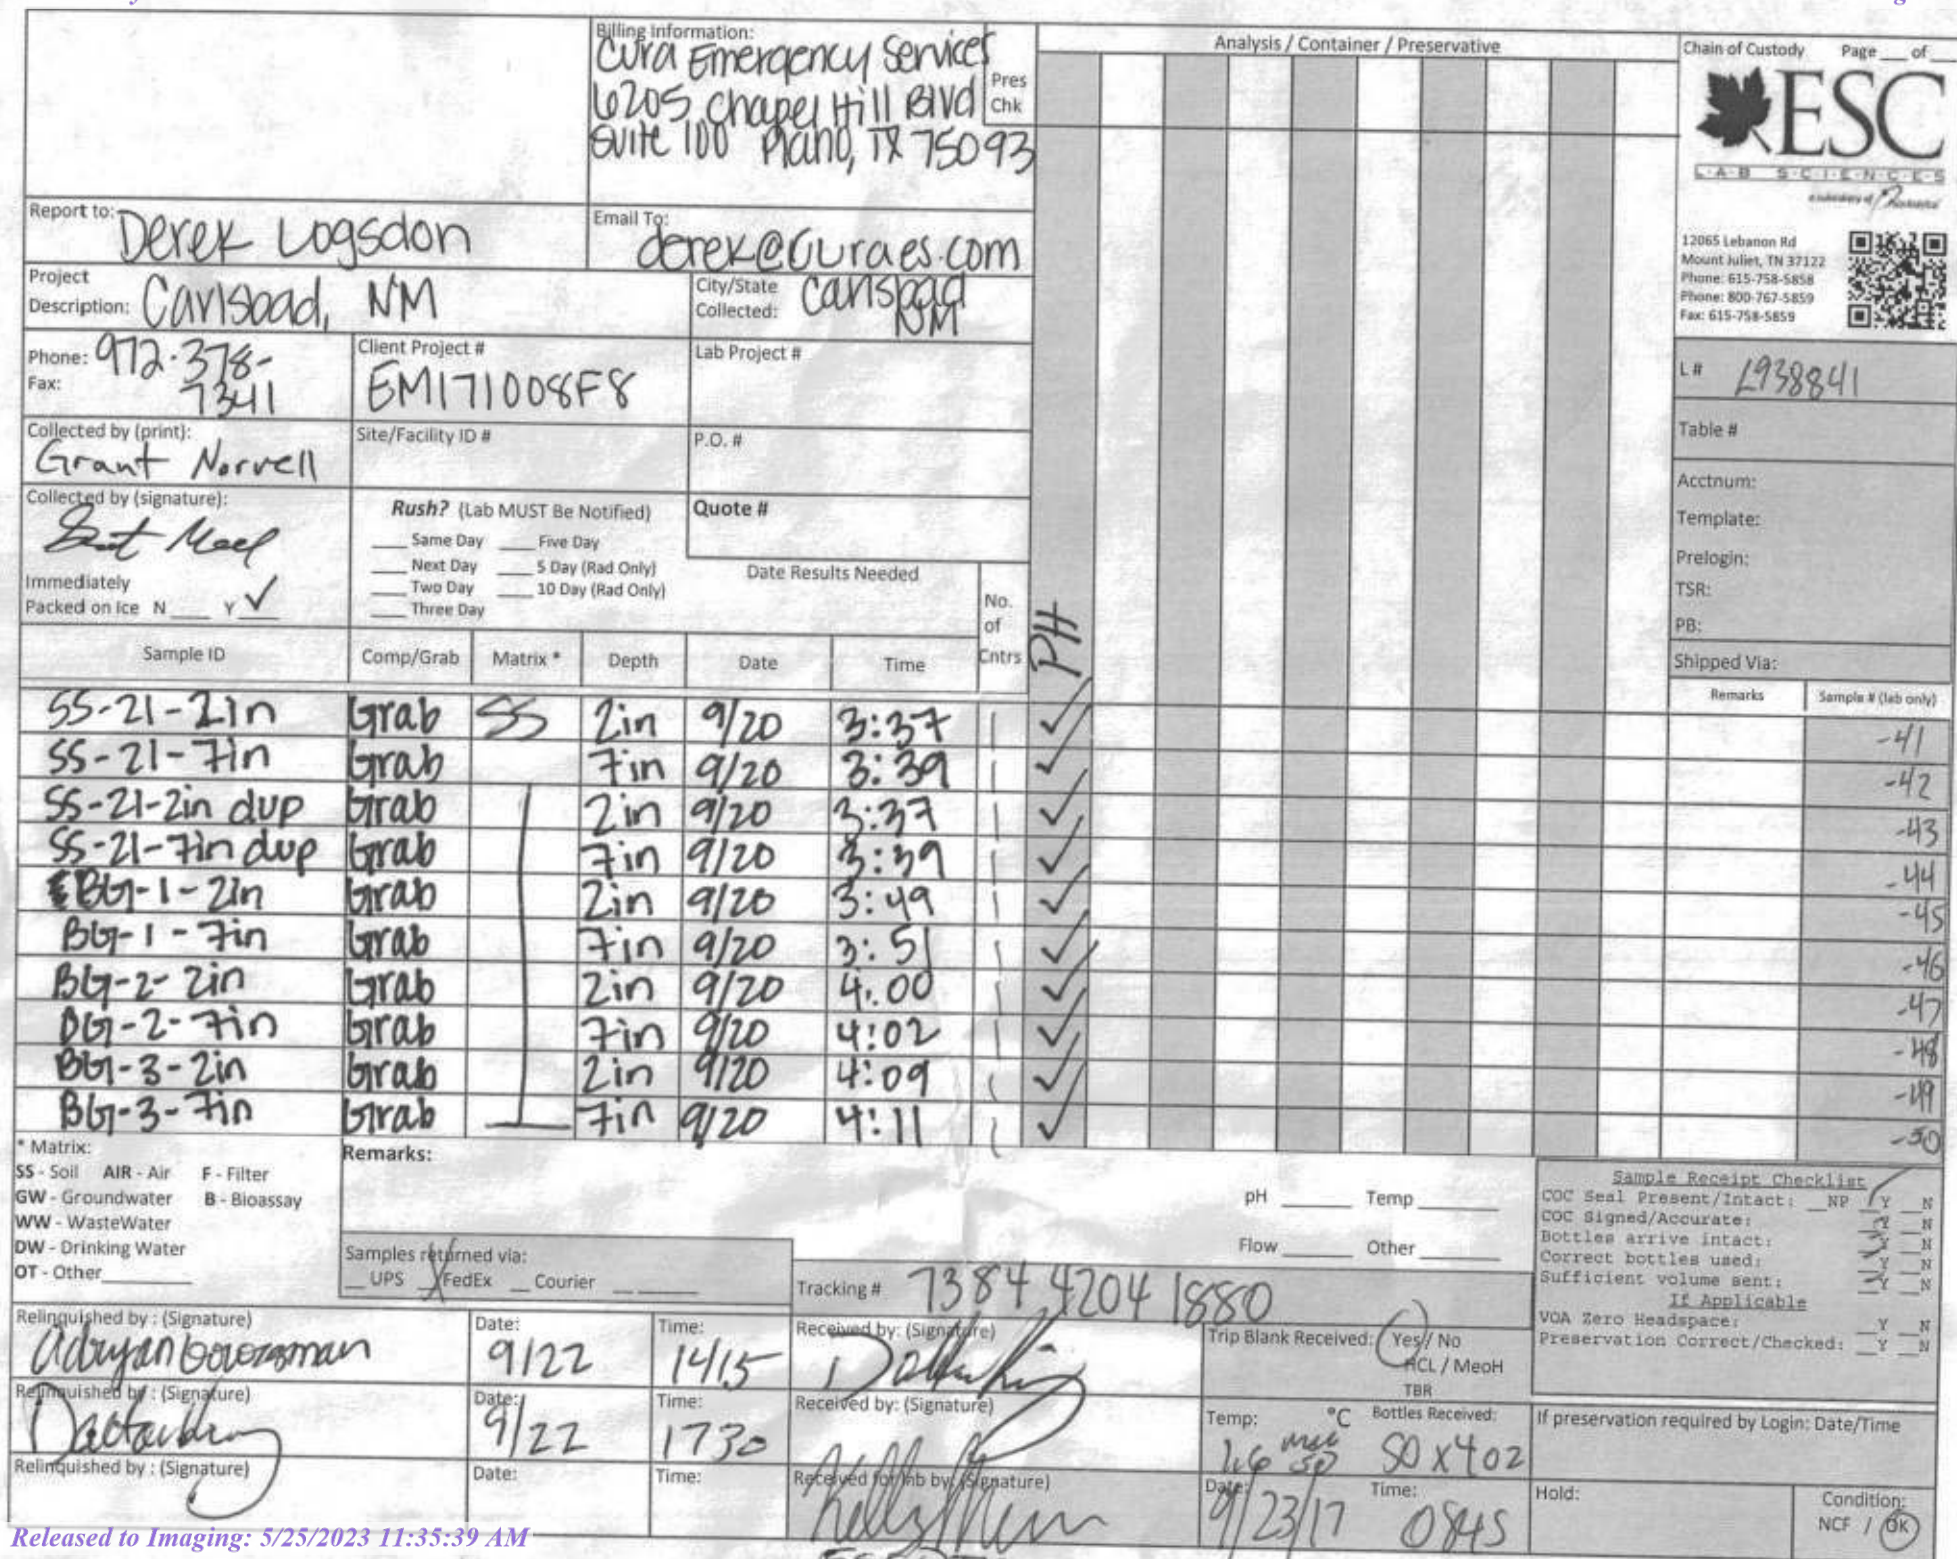 Billing Information:
Cura Emergency Services
6205 Chapel Hill Blvd
Suite 100 Plano, TX 75093
Pres
Chk
Analysis / Container / Preservative
Chain of Custody Page ___ of ___
ESC
L·A·B S·C·I·E·N·C·E·S
a subsidiary of
12065 Lebanon Rd
Mount Juliet, TN 37122
Phone: 615-758-5858
Phone: 800-767-5859
Fax: 615-758-5859
Report to: Derek Logsdon
Email To: derek@curaes.com
Project
Description: Carlsbad, NM
City/State
Collected: Carlsbad
NM
Phone: 972-378-
7341
Fax:
Client Project #
EM171008F8
Lab Project #
L# L938841
Collected by (print):
Grant Norvell
Site/Facility ID #
P.O. #
Table #
Acctnum:
Template:
Prelogin:
TSR:
PB:
Shipped Via:
Collected by (signature):
Immediately
Packed on Ice N ___ Y ✓
Rush? (Lab MUST Be Notified)
___ Same Day ___ Five Day
___ Next Day ___ 5 Day (Rad Only)
___ Two Day ___ 10 Day (Rad Only)
___ Three Day
Quote #
Date Results Needed
No.
of
Cntrs
PH
Sample ID Comp/Grab Matrix * Depth Date Time Remarks Sample # (lab only)
SS-21-2in Grab SS 2in 9/20 3:37 1 ✓ -41
SS-21-7in Grab 7in 9/20 3:39 1 ✓ -42
SS-21-2in dup Grab 2in 9/20 3:37 1 ✓ -43
SS-21-7in dup Grab 7in 9/20 3:39 1 ✓ -44
BG-1-2in Grab 2in 9/20 3:49 1 ✓ -45
BG-1-7in Grab 7in 9/20 3:51 1 ✓ -46
BG-2-2in Grab 2in 9/20 4:00 1 ✓ -47
BG-2-7in Grab 7in 9/20 4:02 1 ✓ -48
BG-3-2in Grab 2in 9/20 4:09 1 ✓ -49
BG-3-7in Grab 7in 9/20 4:11 1 ✓ -50
* Matrix:
SS - Soil AIR - Air F - Filter
GW - Groundwater B - Bioassay
WW - WasteWater
DW - Drinking Water
OT - Other
Remarks:
pH ___ Temp ___
Flow ___ Other ___
Samples returned via:
__ UPS X FedEx __ Courier ___
Tracking # 7384 4204 1880
Sample Receipt Checklist
COC Seal Present/Intact: __NP ✓Y __N
COC Signed/Accurate: ✓Y __N
Bottles arrive intact: ✓Y __N
Correct bottles used: ✓Y __N
Sufficient volume sent: ✓Y __N
If Applicable
VOA Zero Headspace: __Y __N
Preservation Correct/Checked: __Y __N
Relinquished by : (Signature)
Date: 9/22
Time: 1415
Received by: (Signature)
Trip Blank Received: Yes / No
HCL / MeoH
TBR
Relinquished by : (Signature)
Date: 9/22
Time: 1730
Received by: (Signature)
Temp: °C
Bottles Received:
50x4oz
If preservation required by Login: Date/Time
Relinquished by : (Signature)
Date:
Time:
Received for lab by: (Signature)
Date: 9/23/17
Time: 0845
Hold:
Condition:
NCF / OK
Released to Imaging: 5/25/2023 11:35:39 AM